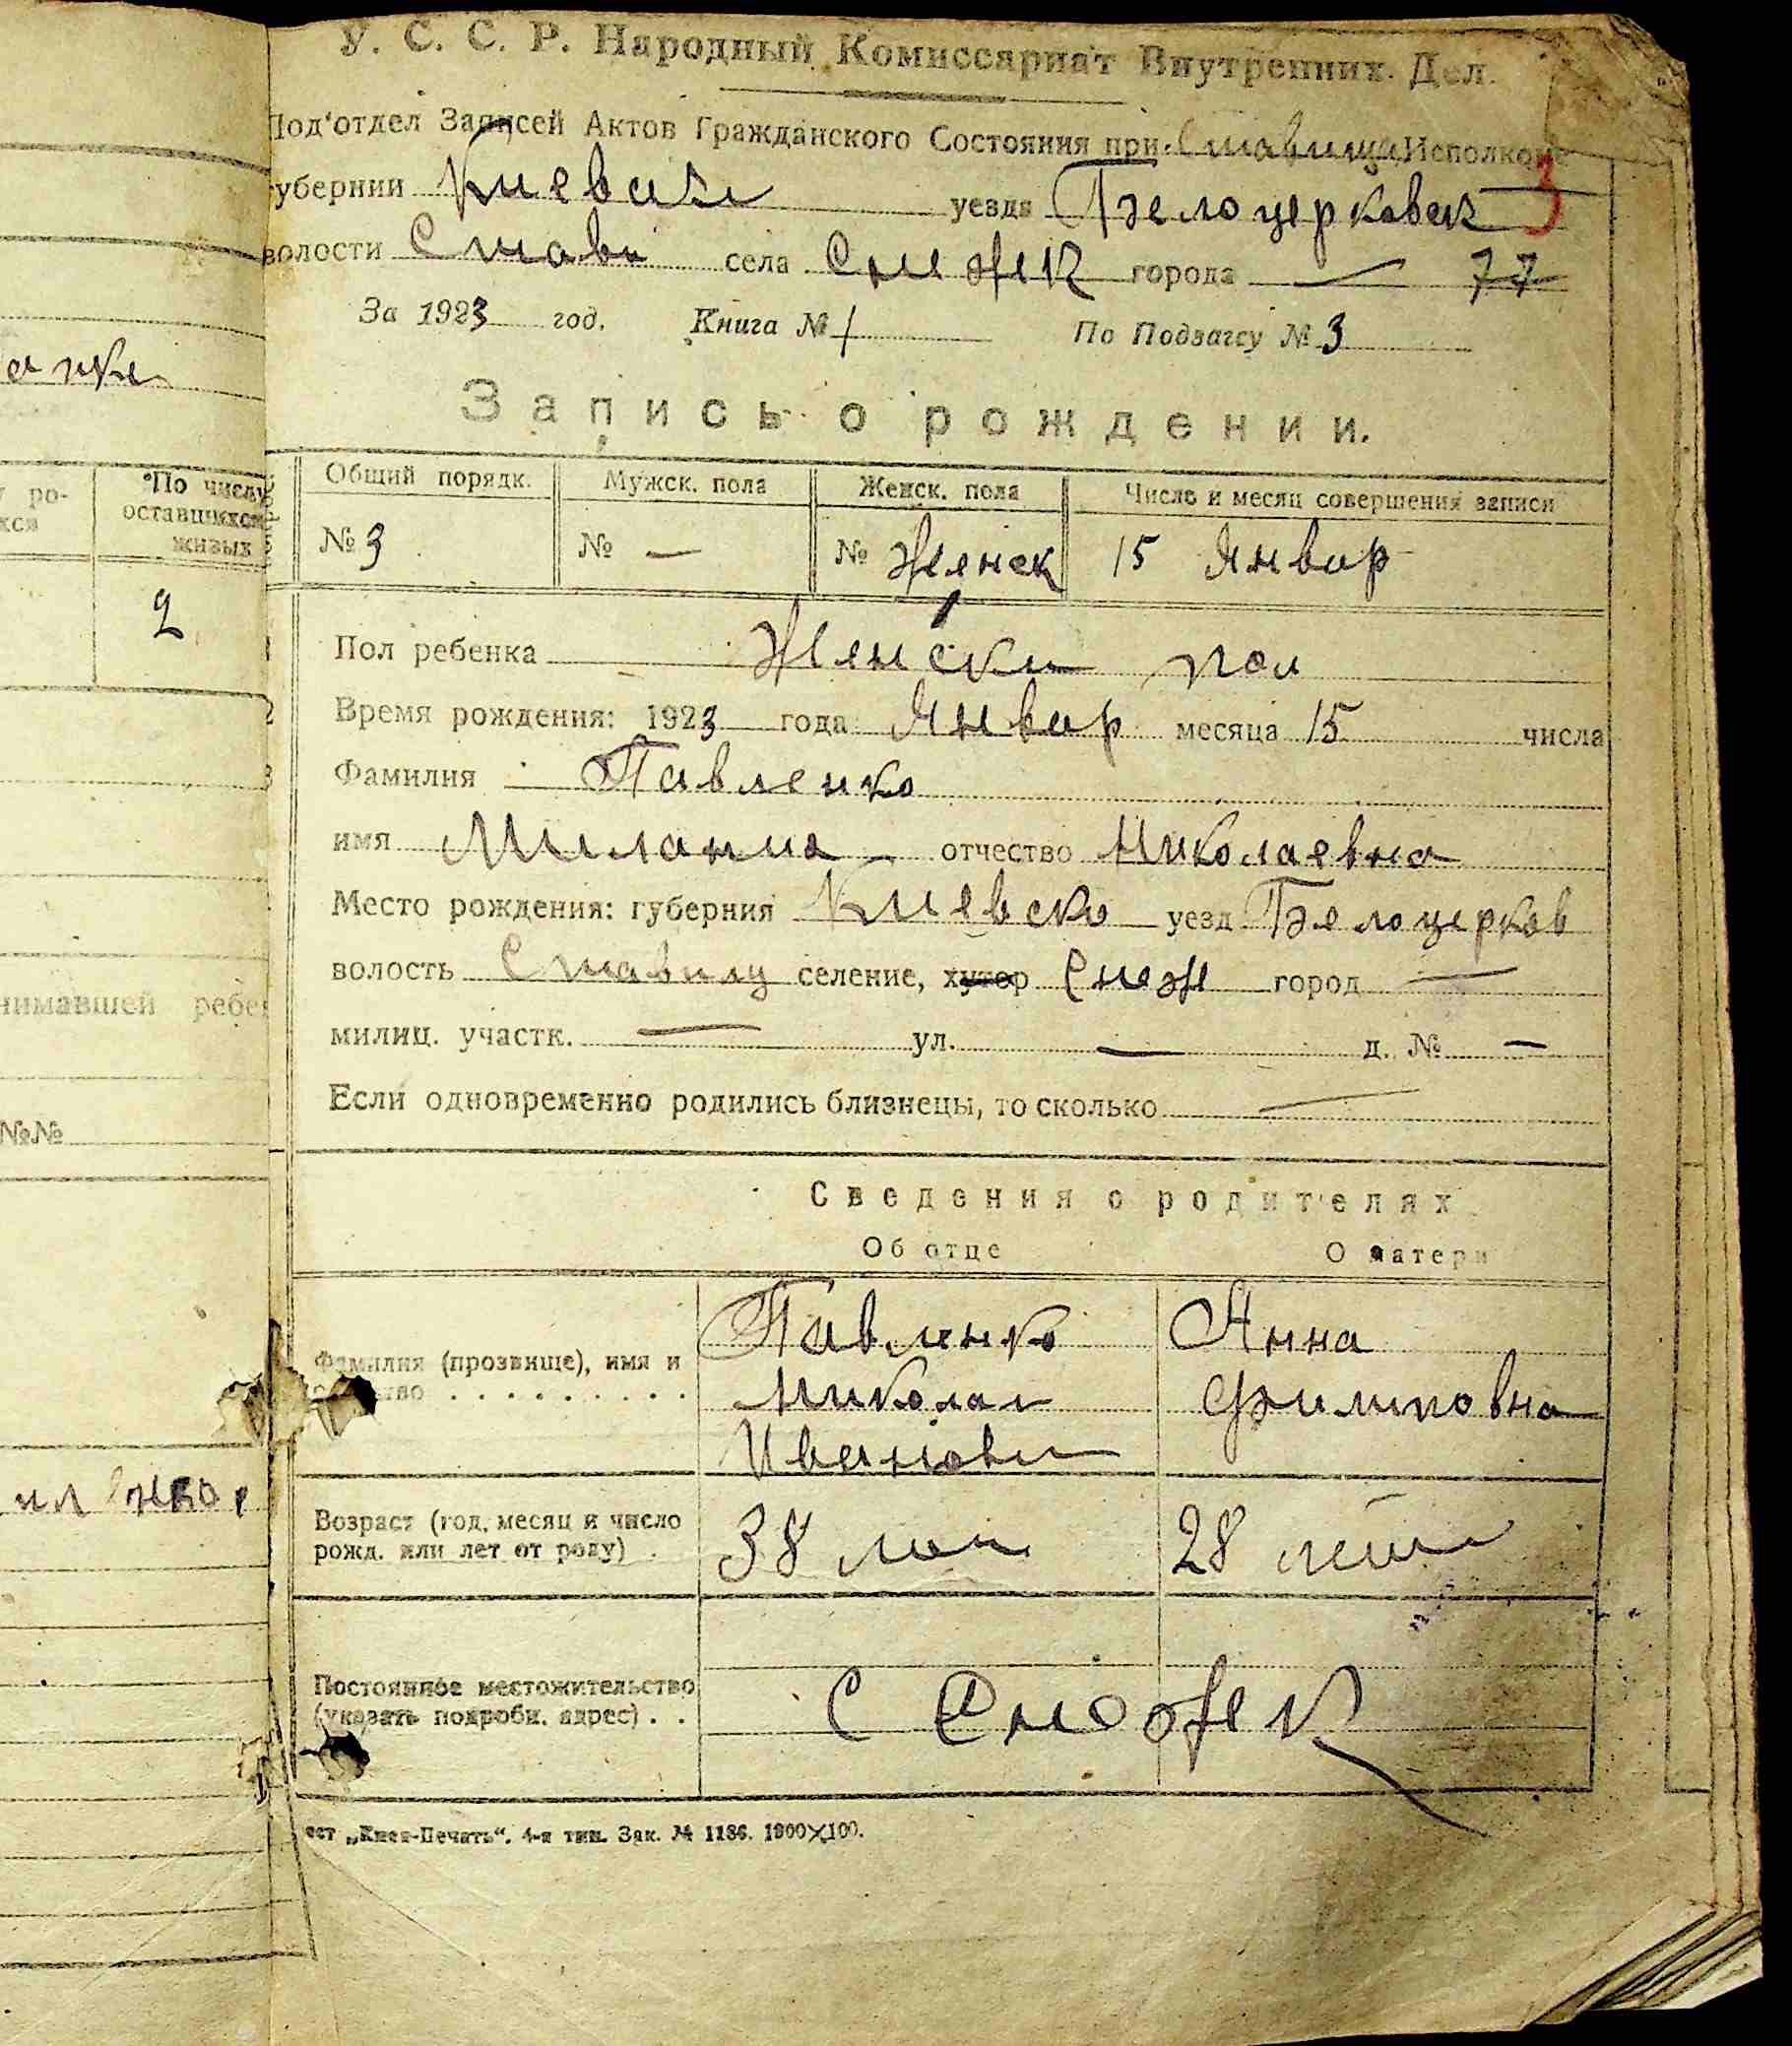 У. С. С. Р. Народный Комиссариат Внутренних Дел.
Под'отдел Записей Актов Гражданского Состояния при Ставищ Исполкоме
губернии Киевск уезда Белоцерковск 3
волости Став села Снежк города — 77
За 1923 год. Книга № 1 По Подзагсу № 3
Запись о рождении.
Общий порядк. Мужск. пола Женск. пола Число и месяц совершения записи
№ 3 № — № Женск 15 Январ
Пол ребенка Женски пол
Время рождения: 1923 года Январ месяца 15 числа
Фамилия Павленко
имя Милания отчество Николаевна
Место рождения: губерния Киевско уезд Белоцерков
волость Ставищ селение, хутор Снеж город —
милиц. участк. — ул. — д. № —
Если одновременно родились близнецы, то сколько —
Сведения о родителях
Об отце О матери
Фамилия (прозвище), имя и
Павленко Анна
Николай Филиповна
Иванови
Возраст (год, месяц и число
рожд. или лет от роду) . 38 лет 28 лет
Постоянное местожительство
(указать подробн. адрес) . . С Снежк
ест „Киев-Печать“. 4-я тип. Зак. № 1186. 1000×100.
у ро-
хся
По числу
оставшихся
живых
2
нимавшей ребен
№№